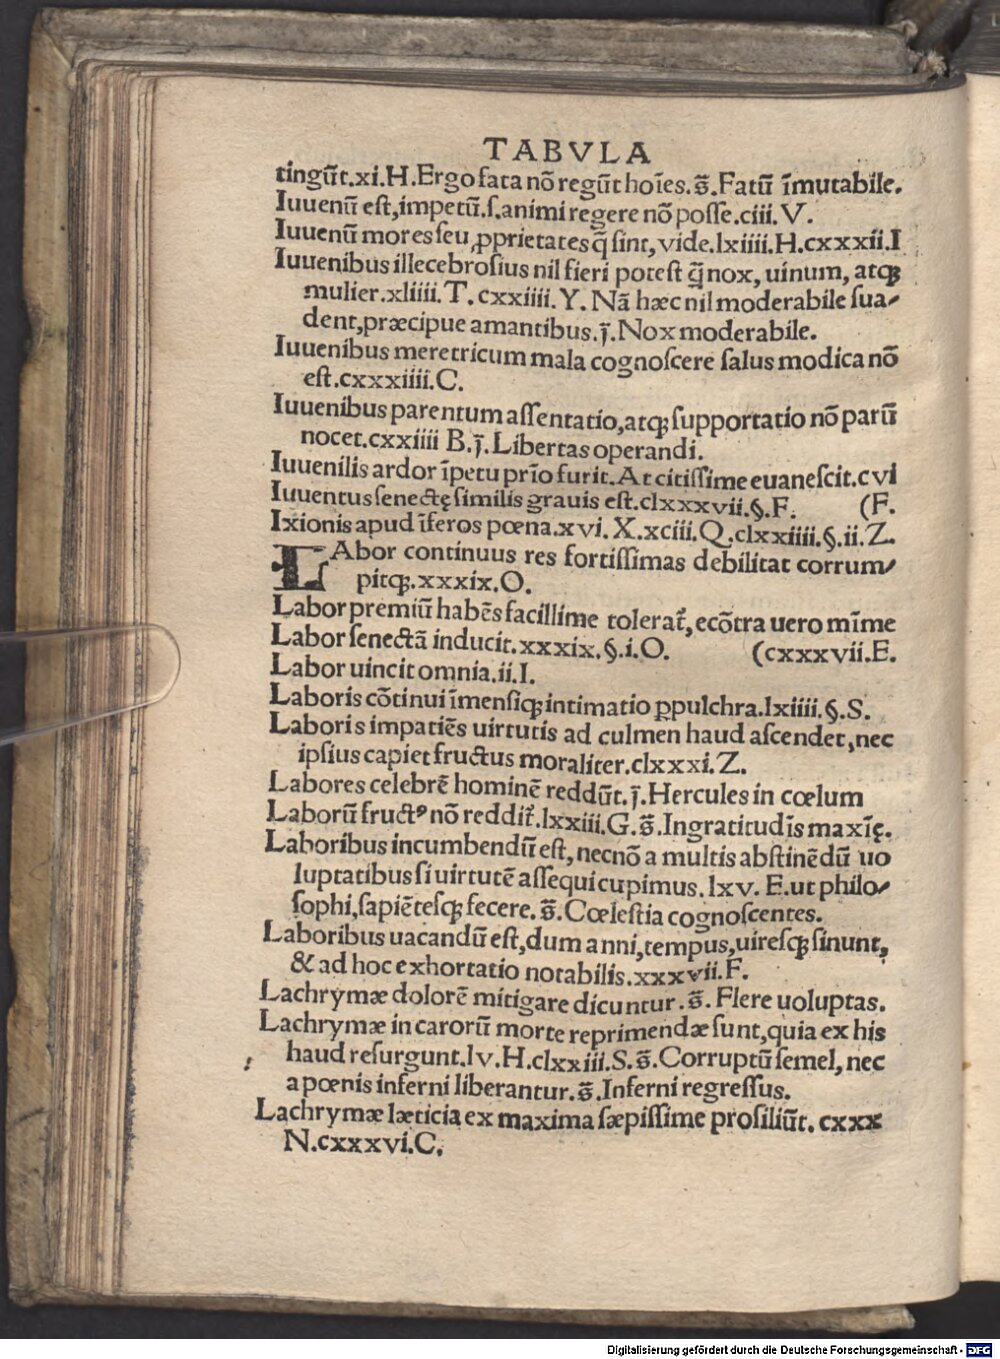 TABVLA
tingūt.xi.H.Ergo fata nō regūt hoīes.s̄.Fatū īmutabile.
Iuuenū est,impetū.ſ.animi regere nō poſſe.ciii.V.
Iuuenū mores ſeu ꝓprietates q̄ ſint, vide.lxiiii.H.cxxxii.I
Iuuenibus illecebroſius nil fieri poteſt q̄ nox, uinum, atqꝫ
mulier.xliiii.T.cxxiiii.Y.Nā hæc nil moderabile ſua⸗
dent,præcipue amantibus.j̄.Nox moderabile.
Iuuenibus meretricum mala cognoſcere ſalus modica nō
eſt.cxxxiiii.C.
Iuuenibus parentum aſſentatio,atqꝫ ſupportatio nō parū
nocet.cxxiiii B.j̄.Libertas operandi.
Iuuenilis ardor īpetu prīo furit.At citiſſime euaneſcit.cvi
Iuuentus ſenectę ſimilis grauis eſt.clxxxvii.§.F. (F.
Ixionis apud īferos pœna.xvi.X.xciii.Q.clxxiiii.§.ii.Z.
LAbor continuus res fortiſſimas debilitat corrum⸗
pitqꝫ.xxxix.O.
Labor premiū habēs facillime tolerat᷑, ecōtra uero mīme
Labor ſenectā inducit.xxxix.§.i.O. (cxxxvii.E.
Labor uincit omnia.ii.I.
Laboris cōtinui īmenſiqꝫ intimatio ꝑpulchra.lxiiii.§.S.
Laboris impatiēs uirtutis ad culmen haud aſcendet,nec
ipſius capiet fructus moraliter.clxxxi.Z.
Labores celebrē hominē reddūt.j̄.Hercules in cœlum
Laborū fructꝰ nō reddit᷑.lxxiii.G.s̄.Ingratitudīs maxīę.
Laboribus incumbendū eſt, necnō a multis abſtinēdū uo
luptatibus ſi uirtutē aſſequi cupimus.lxv.E.ut philo⸗
ſophi,ſapiētesqꝫ fecere.s̄.Cœleſtia cognoſcentes.
Laboribus uacandū eſt,dum anni,tempus,uireſqꝫ ſinunt,
& ad hoc exhortatio notabilis.xxxvii.F.
Lachrymæ dolorē mitigare dicuntur.s̄.Flere uoluptas.
Lachrymæ in carorū morte reprimendæ ſunt,quia ex his
haud reſurgunt.lv.H.clxxiii.S.s̄.Corruptū ſemel, nec
a pœnis inferni liberantur.s̄.Inferni regreſſus.
Lachrymæ læticia ex maxima ſæpiſſime proſiliūt.cxxx
N.cxxxvi.C.
Digitalisierung gefördert durch die Deutsche Forschungsgemeinschaft - DFG